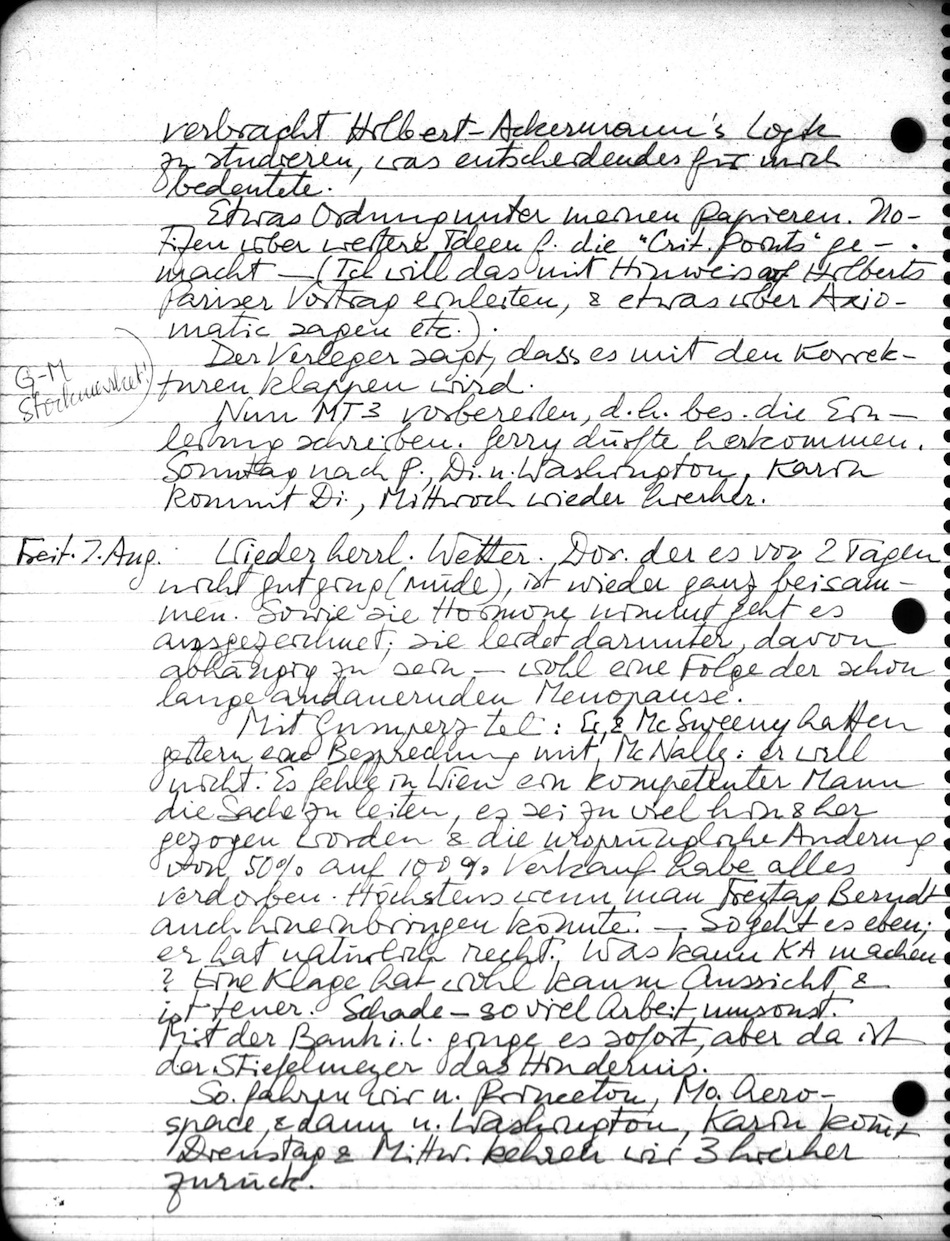 verbracht Hilbert-Ackermann's Logik
zu studieren, was entscheidendes für mich
bedeutete.
Etwas Ordnung unter meinen Papieren. No-
tizen über weitere Ideen f. die "Crit. Points" ge-
macht — (Ich will das mit Hinweis auf Hilberts
Pariser Vortrag einleiten, & etwas über Axio-
matic sagen etc.).
Der Verleger sagt, dass es mit den Korrek-
G-M
Stockmarket!
turen klappen wird.
Nun MT3 vorbereiten, d.h. bes. die Ein-
leitung schreiben. Jerry dürfte herkommen.
Sonntag nach P., Di. n. Washington, Karin
kommt Di., Mittwoch wieder hierher.
Freit. 7. Aug. Wieder herrl. Wetter. Dor. der es vor 2 Tagen
nicht gut ging (müde), ist wieder ganz beisam-
men. Sowie sie Hormone nimmt geht es
ausgezeichnet; sie leidet darunter, davon
abhängig zu sein — wohl eine Folge der schon
lange andauernden Menopause.
Mit Gumperz tel.: G. & McSweeny hatten
gestern eine Besprechung mit McNally: er will
nicht. Es fehle in Wien ein kompetenter Mann
die Sache zu leiten, es sei zu viel hin & her
gezogen worden & die ursprüngliche Änderung
von 50% auf 100% Verkauf habe alles
verdorben. Höchstens wenn man Freytag Berndt
auch hineinbringen könnte. — So geht es eben;
er hat natürlich recht. Was kann KA machen
? Eine Klage hat wohl kaum Aussicht &
ist teuer. Schade — so viel Arbeit umsonst.
Mit der Bank i. L. ginge es sofort, aber da ist
der Stiefelmeyer das Hindernis.
So. fahren wir n. Princeton, Mo. Aero-
space, & dann n. Washington, Karin kommt
Dienstag & Mittw. kehren wir 3 hierher
zurück.